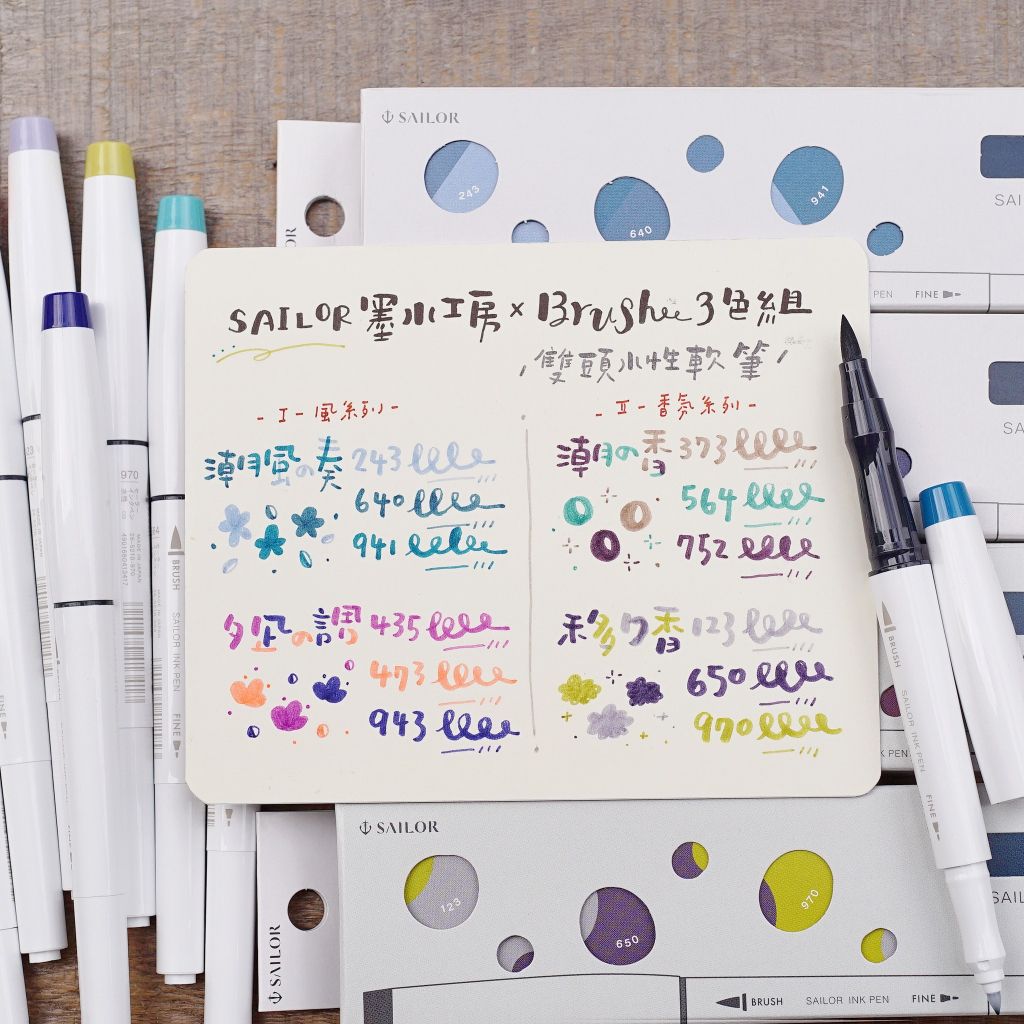 SAILOR
243
640
941
SAILOR
PEN FINE
SAILOR 墨水工房 × Brushee 3色組
雙頭水性軟筆
- I - 風系列 -
潮風の奏 243
640
941
夕凪の調 435
473
943
- II - 香氛系列 -
潮の香 373
564
752
移り香 123
650
970
970
MADE IN JAPAN
BRUSH SAILOR INK PEN FINE
BRUSH SAILOR INK PEN FINE
FINE
K PEN FINE
SAILOR
123
650
970
SAILOR
BRUSH SAILOR INK PEN FINE